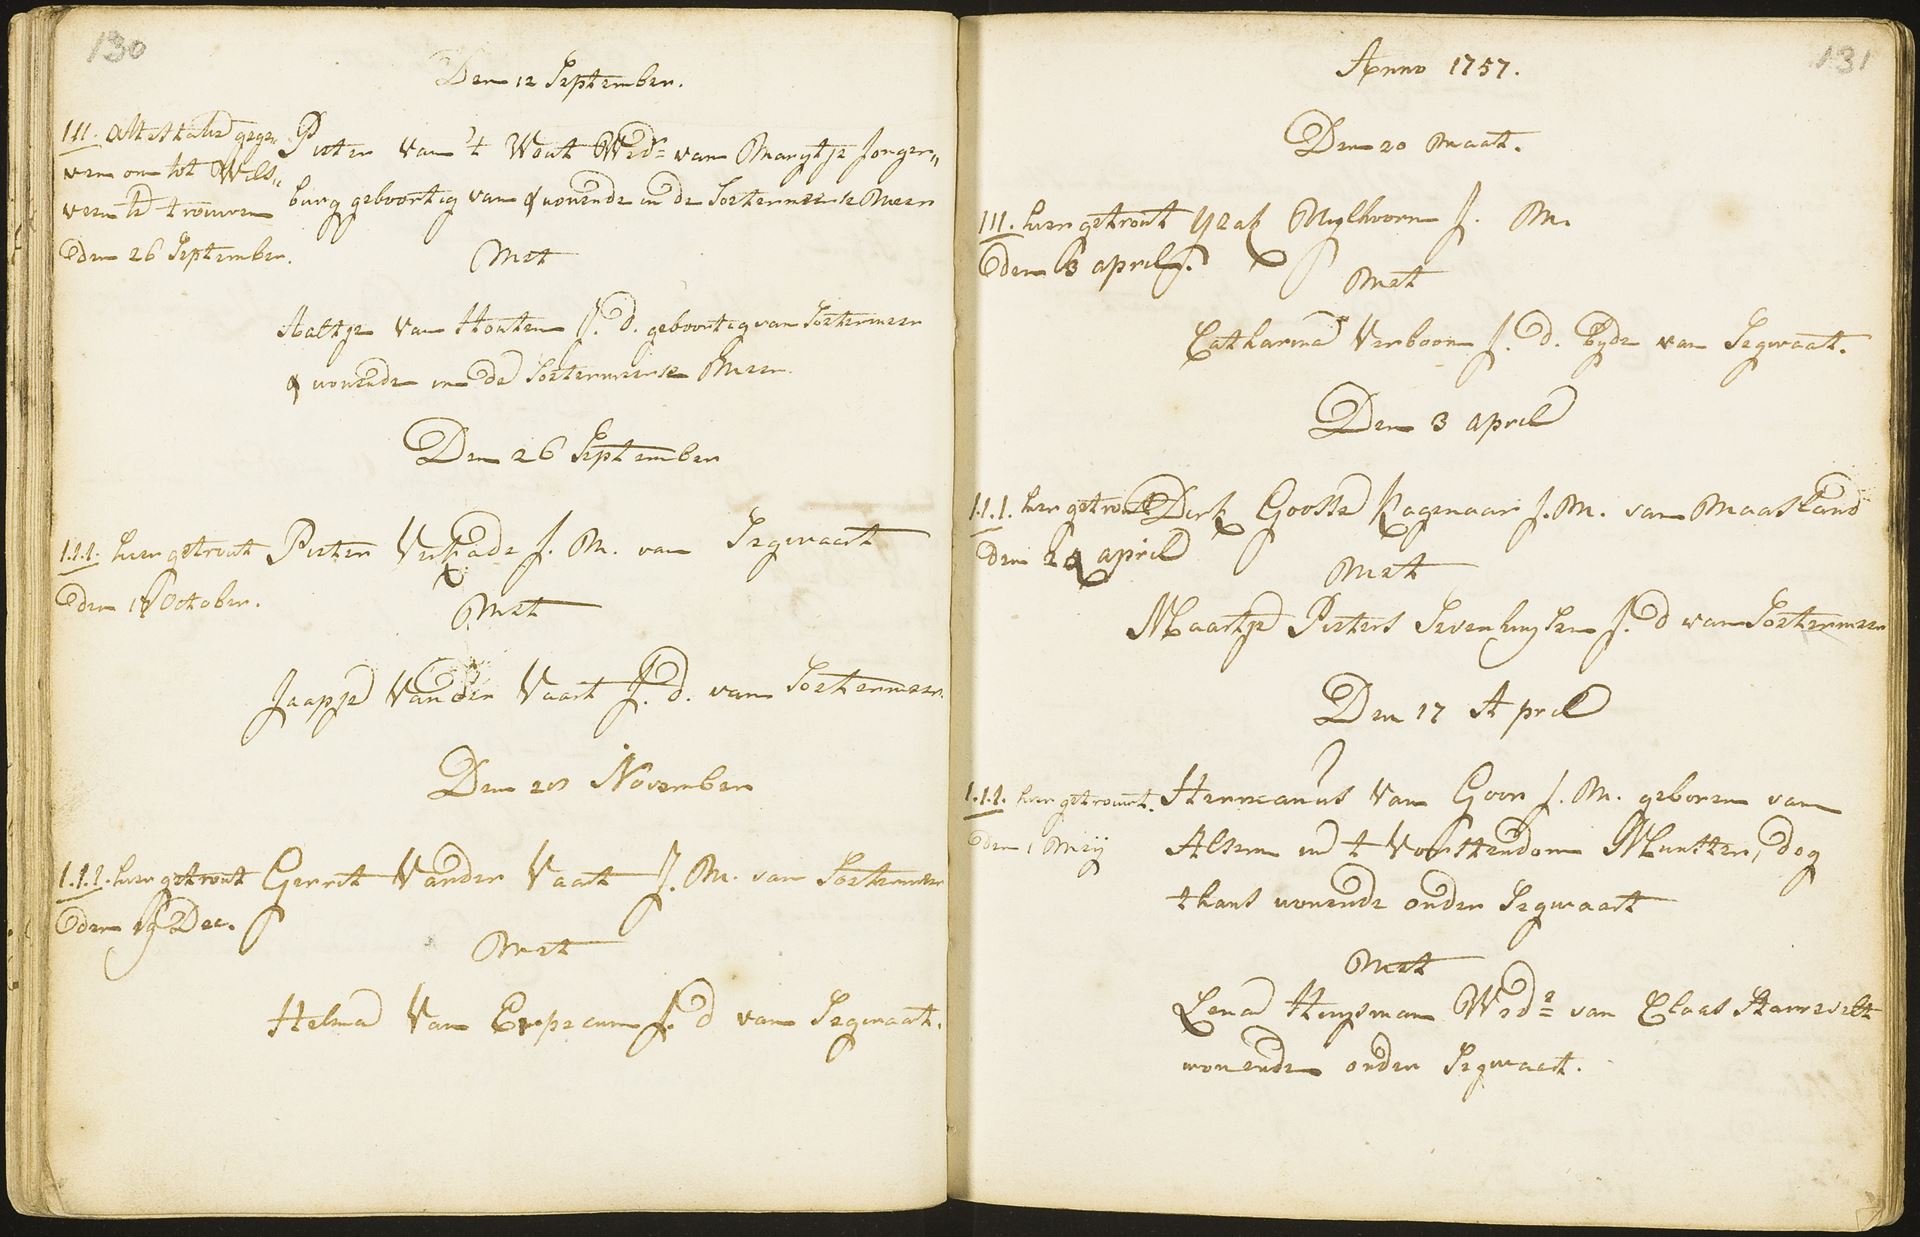 130
Den 12 September.
III. Attestatie gege„
ven om tot Wils„
veen te trouwen
den 26 September.
Pieter van 't Wout Wedr van Marytje Jonger„
burg geboortig van & wonende in de Soetermeerse Meer
Met
Aaltje van Houten J. d. geboortig van Soetermeer
& wonende in de Soetermeerse Meer.
Den 26 September
1.1.1. hier getrout
den October.
Pieter Verkade J. M. van Segwaart
Met
Jaapje Vander Vaart J. d. van Soetermeer.
Den November
1.1.1. hier getrout
den Dec.
Gerrit Vander Vaart J. M. van Soetermeer
Met
Helena Van J. d van Segwaart.
131
Anno 1757.
Den 20 Maart.
III. hier getrout
den 3 april.
Ysak Mylhoorn J. M.
Met
Catharina Verboon J. d. Byde van Segwaart.
Den 3 april
1.1.1. hier getrout
den april
Dirk Goosse Kagenaar J. M. van Maasland
Met
Maartje Pieters Sevenhuysen J. d van Soetermeer
Den 17 April
1.1.1. hier getrouwt.
den 1 Meij
Hermanus Van Goor J. M. geboren van
Alsem in 't Vorstendom Munster, dog
thans wonende onder Segwaart
Met
Lena Huysman Wede van Claas Hamevelt
wonende onder Segwaart.